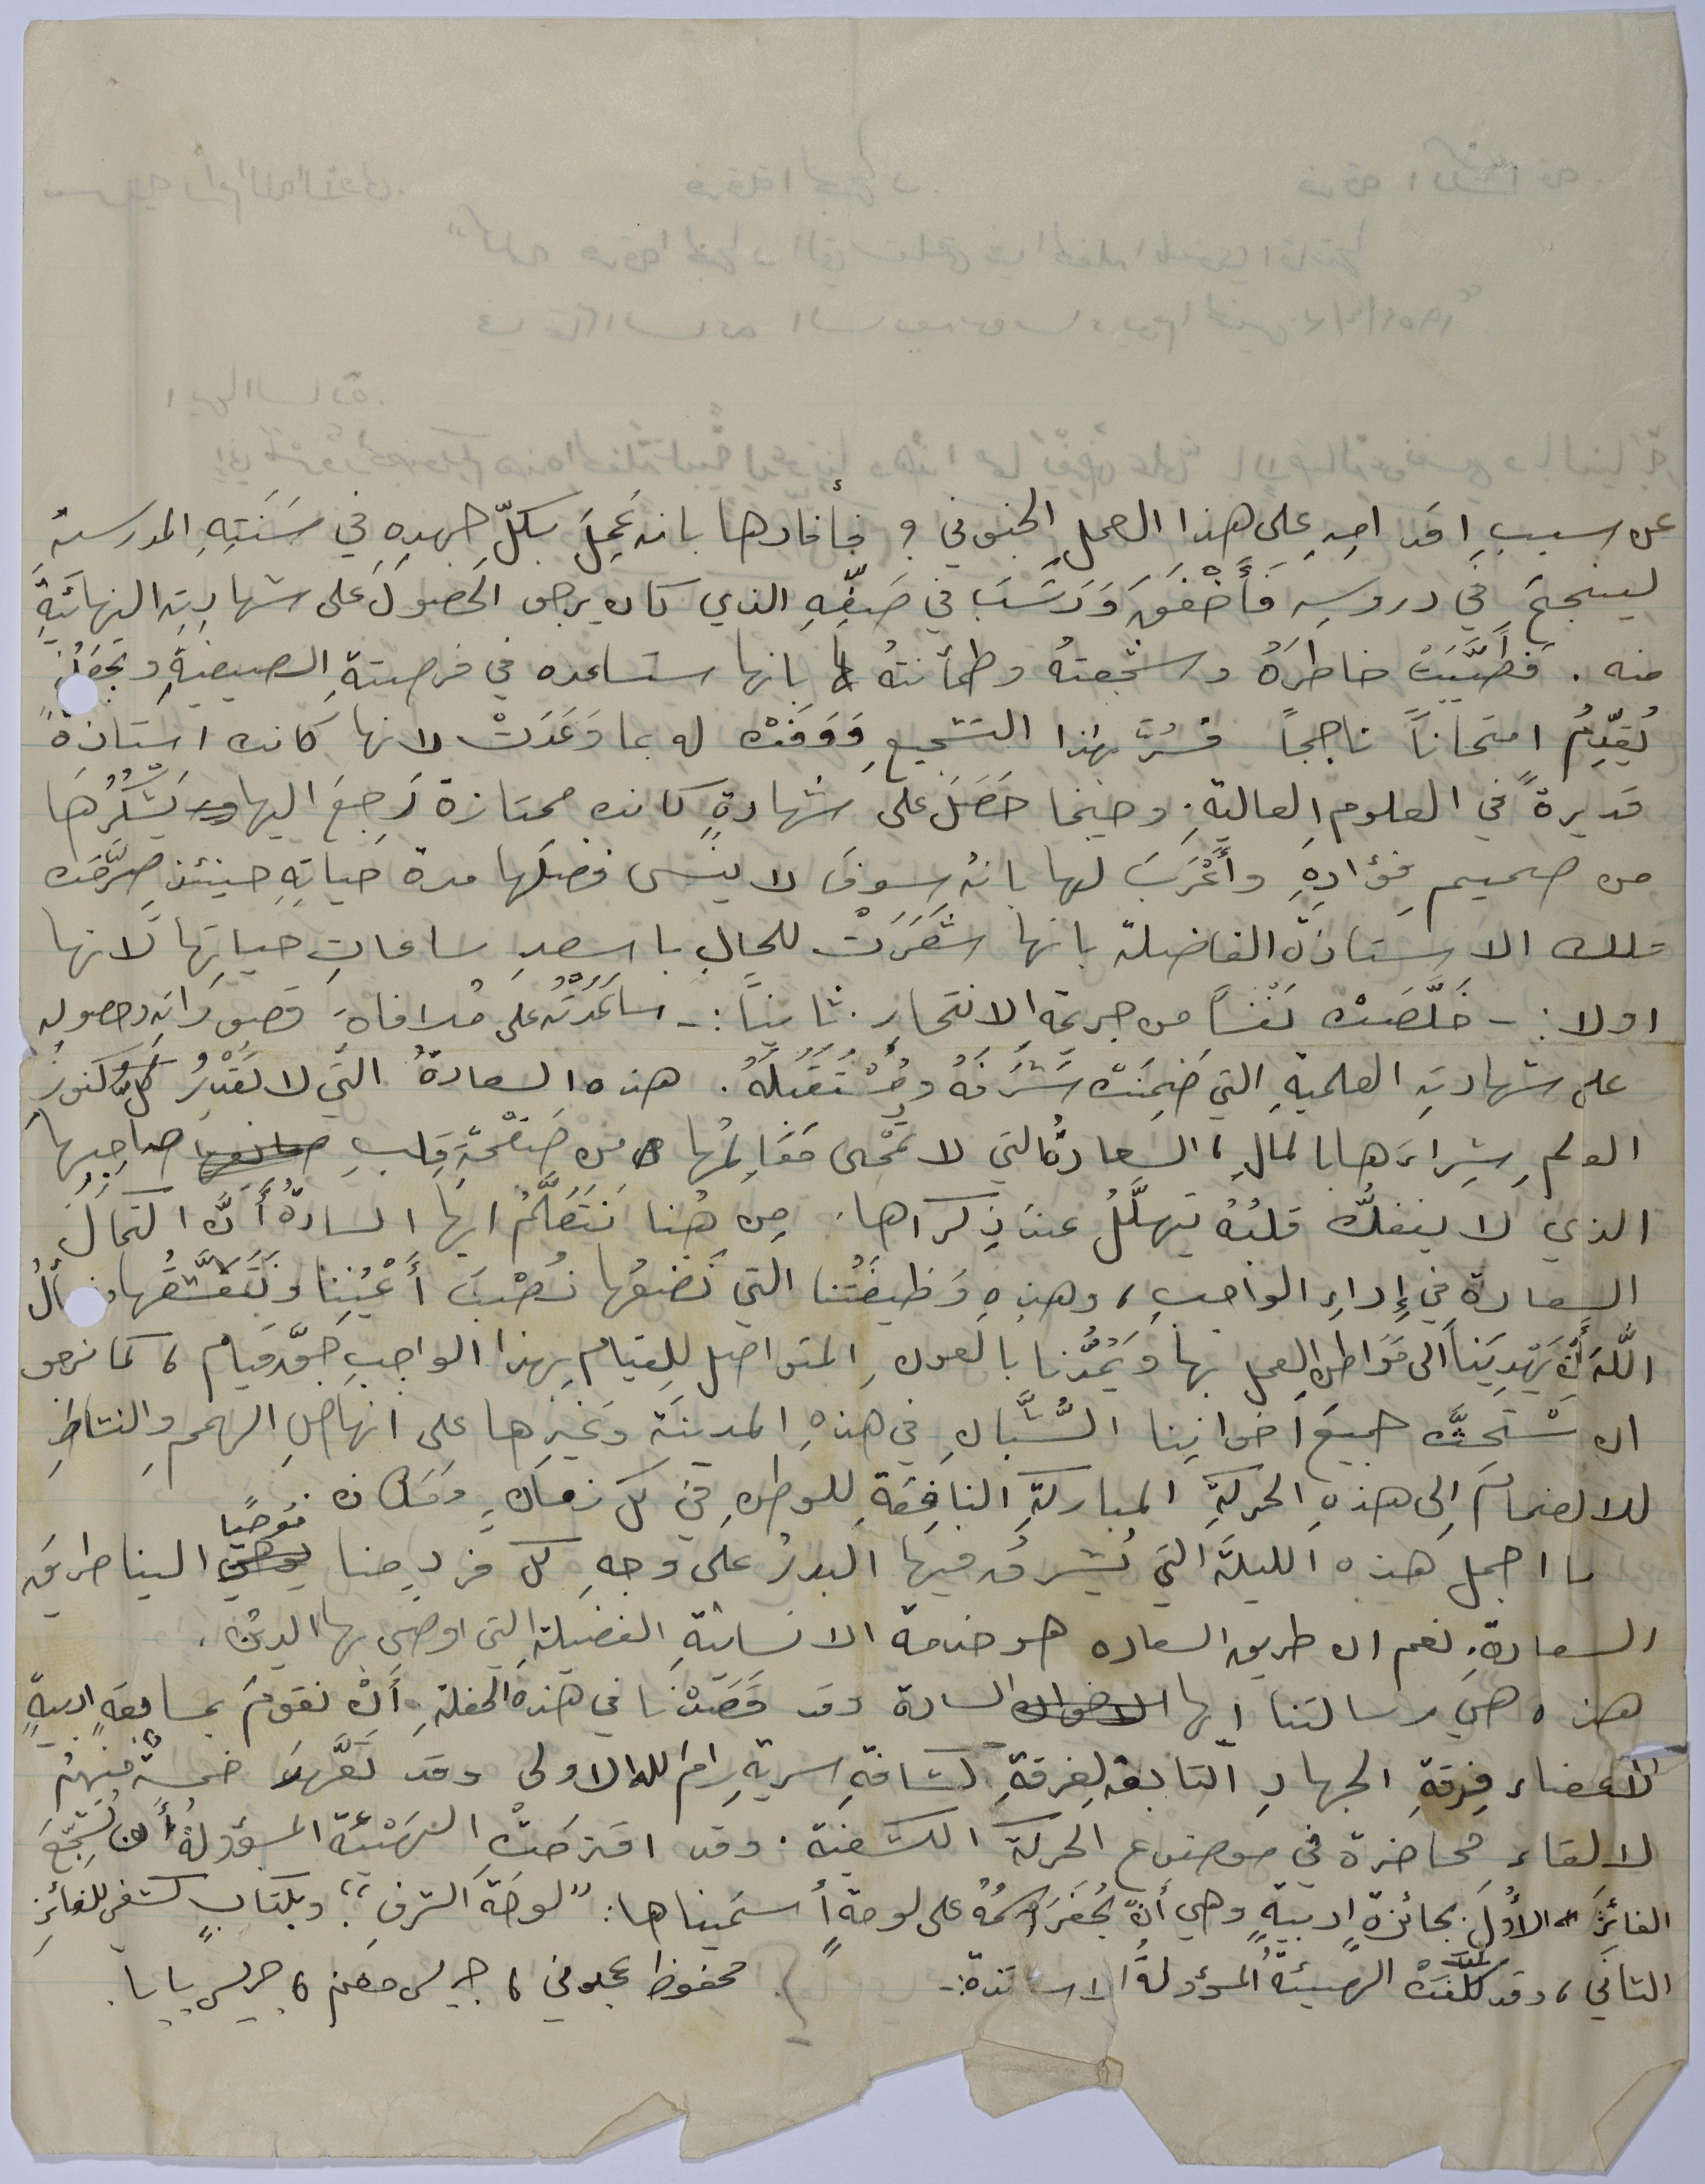 عن سببِ اقدامِهِ على هذا العملِ الجنوني، فأفادها بانه عَمِلَ بكلِّ جهدِهِ في سَنَتِهِ المدرسية
لينجحَ في دروسِهِ فَأَخْفَقَ وَرَسَبَ في صَفِّهِ الذي كان يرجو الحصولَ على شهادتِهِ النهائيةِ
منه. فَطَيَّبَتْ خاطرَهُ وشجعتهُ وطمأنتهُ بانها ستساعده في فرصتةِ الصيفيةِ وتجعلهُ
يُقدِّمُ امتحاناً ناجحاً فسُرَّ بهذا التشجيعِ وَوَفَتْ له بما وَعَدَتْ لانها كانت استاذةً
قديرةً في العلومِ العاليةِ. وحينما حَصَلَ على شهادةٍ كانت ممتازة رَجِعَ اليها يَشْكُرُهَا
من صميمِ فؤادِهِ وأَعْرَبَ لها بانهُ سوفَ لا ينسى فضلَها مدة حياتِهِ حينئذٍ صرَّحَت
تلك الاستاذة الفاضلة بانها شَعَرَتْ للحالِ باسعدِ ساعاتِ حياتِها لانها
اولا:- خَلَّصَتْ نَفْساً من جريمةِ الانتحارِ. ثانياً:- ساعَدَتْهُ على مُلافاةِ قصورِاتِهِ وحصوله
على شهادتِهِ العلميةِ التي ضَمِنَتْ شَرَفَهُ ومُسْتَقْبَلَهُ. هذه السعادةُ التي لا تَقْدِرُ كلُّ كنوزُ
العالمِ بشِراءَها بالمالِ، السعادةُ التي لا تمْحى مَعَالِمُها من صَفْحَةِ قلبِ صاحِبِها
الذي لا ينفكُّ قلبُهُ يَتهلَّلُ عندَ ذِكراها. مِن هُنا نَتَعَلَّمُ ايها السادةُ أَنَّ اكتمالَ
السعادة في إِداءِ الواجبِ، وهذِهِ وَظيفَتُنا التي نَضعُها نُصْبَ أَعْيُنِنا ونَتَعَشَّقُها ونسألُ
اللهَ أَن يَهْدِيَنا الى مَواطنِ العملِ بها وَيَمُدَّنا بالعونِ المتواصل للقيامِ بهذا الواجبِ حقَّ قيام، كما نرجو
ان نَسْتَحِثَّ جميعَ اخوانِنا الشُّبَّانِ في هذهِ المدينَة وغيرِها على انهاضِ الهممِ والنشاطِ
للانضمامِ الى هذهِ الحركةِ المباركةِ النافِعَةِ للوطنِ في كل زمانٍ ومَكان.
ما اجمل هذه الليلةَ التي يُشرقُ فيها البدرُ على وجهِ كل فردٍ منا مُوحيًا الينا طريق
السعادةِ. نعم ان طريق السعاده هو خدمة الانسانيةِ الفضيلةِ التي اوصى بها الدين.
هذه هي رسالتنا ايها السادة وقد قَصَدْنا في هذه الحفلةِ أَنْ نقومَ بمسابقةٍ ادبيةٍ
لأعضاء فِرقةِ الجهادِ التابعة لفرقةِ كشافةِ سريةِ رام الله الاولى وقد تَعَّهَدَ خمسةٌ منهمُ
لالقاء محاضرة في موضوعِ الحركة الكشفية. وقد اقترحَتْ الهَيْئَة المسؤولةُ أَن تُشَجِّعَ
الفائِزَ الأَولَ بجائزةٍ ادبيةٍ وهي أَنْ يُحْفَرَ اسمُهُ على لوحةٍ أسميناها: "لوحَة الشرفِ"، وبكتابٍ كشفي للفائزِ
الثاني، وقد كلَّفَتْ الهيئةُ المسؤولةُ الاساتذة:- محفوظ عجلوني، جريس مغنم، جريس بابا.